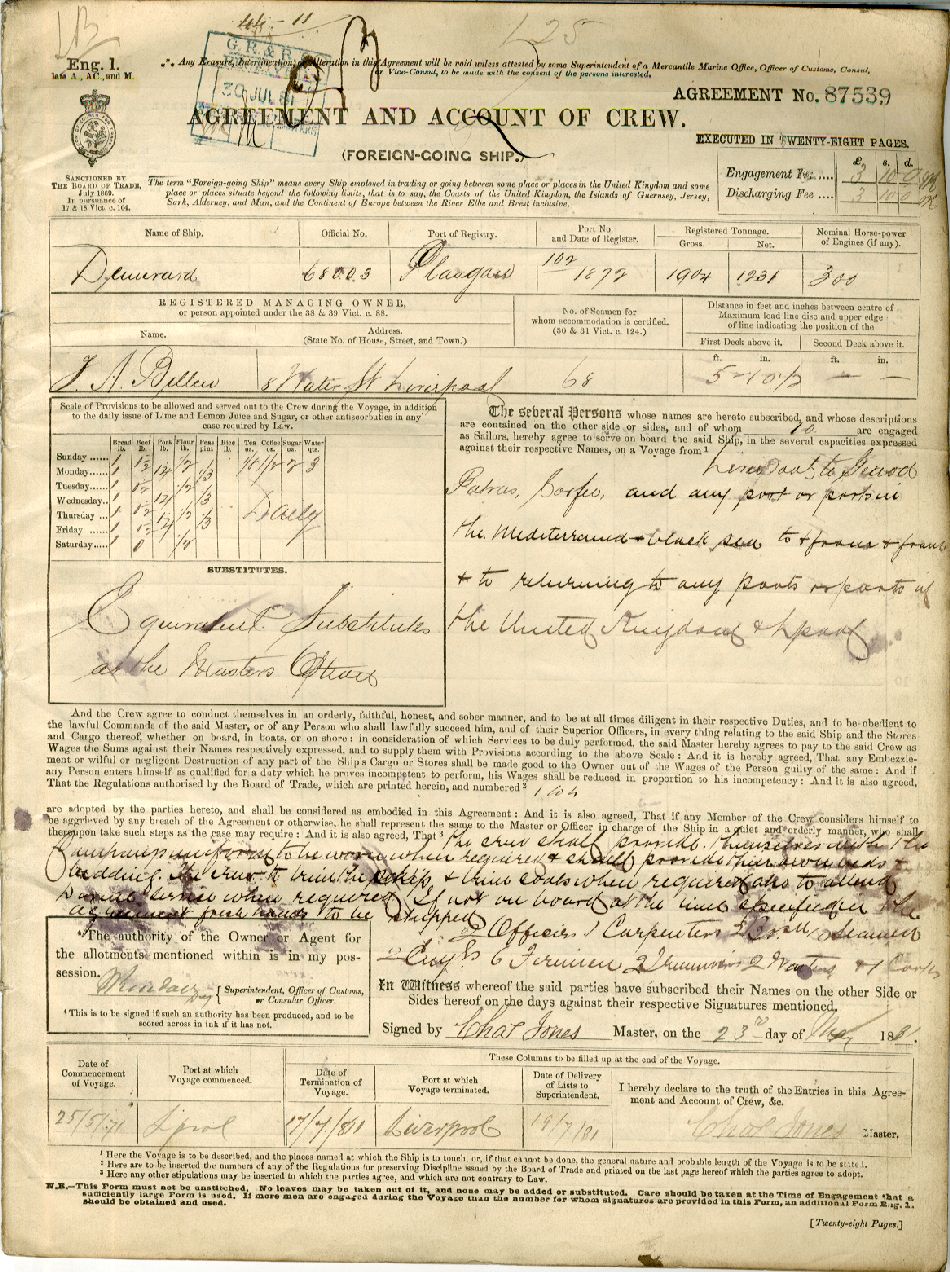 Eng. 1.
late A., AC, and M.
∴ Any Erasure, Interlineation, or Alteration in this Agreement will be void unless attested by some Superintendent of a Mercantile Marine Office, Officer of Customs, Consul,
or Vice-Consul, to be made with the consent of the persons interested.
G. R. & R.
30 JUL 81
AGREEMENT No. 87539
AGREEMENT AND ACCOUNT OF CREW.
(FOREIGN-GOING SHIP.)
EXECUTED IN TWENTY-EIGHT PAGES.
£. s. d.
Engagement Fee .... 3 10 0
Discharging Fee .... 3 10 0
SANCTIONED BY
THE BOARD OF TRADE,
July 1869.
IN PURSUANCE OF
17 & 18 Vict. c. 104.
The term "Foreign-going Ship" means every Ship employed in trading or going between some place or places in the United Kingdom and some
place or places situate beyond the following limits, that is to say, the Coasts of the United Kingdom, the Islands of Guernsey, Jersey,
Sark, Alderney, and Man, and the Continent of Europe between the River Elbe and Brest inclusive.
Name of Ship. Official No. Port of Registry. Port No. and Date of Register. Registered Tonnage. Gross. Net. Nominal Horse-power of Engines (if any).
1872 1904 1231 300
REGISTERED MANAGING OWNER,
or person appointed under the 38 & 39 Vict. c. 88.
Name. Address.
(State No. of House, Street, and Town.)
No. of Seamen for
whom accommodation is certified.
(30 & 31 Vict. c. 124.)
Distance in feet and inches between centre of
Maximum load line disc and upper edge
of line indicating the position of the
First Deck above it. Second Deck above it.
ft. in. ft. in.
8 Water St Liverpool 68
Scale of Provisions to be allowed and served out to the Crew during the Voyage, in addition
to the daily issue of Lime and Lemon Juice and Sugar, or other antiscorbutics in any
case required by Law.
Bread lb. Beef lb. Pork lb. Flour lb. Peas pint Rice lb. Tea oz. Coffee oz. Sugar oz. Water qts.
Sunday
Monday
Tuesday
Wednesday
Thursday
Friday
Saturday
Daily
SUBSTITUTES.
Equivalent Substitutes
at the Masters Option
The several Persons whose names are hereto subscribed, and whose descriptions
are contained on the other side or sides, and of whom are engaged
as Sailors, hereby agree to serve on board the said Ship, in the several capacities expressed
against their respective Names, on a Voyage from¹
Patras, Corfu, and any port or ports in
the Mediterranean & black sea to & from
& to returning to any ports or ports of
the United Kingdom
And the Crew agree to conduct themselves in an orderly, faithful, honest, and sober manner, and to be at all times diligent in their respective Duties, and to be obedient to
the lawful Commands of the said Master, or of any Person who shall lawfully succeed him, and of their Superior Officers, in every thing relating to the said Ship and the Stores
and Cargo thereof, whether on board, in boats, or on shore: in consideration of which Services to be duly performed, the said Master hereby agrees to pay to the said Crew as
Wages the Sums against their Names respectively expressed, and to supply them with Provisions according to the above Scale: And it is hereby agreed, That any Embezzle-
ment or wilful or negligent Destruction of any part of the Ship's Cargo or Stores shall be made good to the Owner out of the Wages of the Person guilty of the same: And if
any Person enters himself as qualified for a duty which he proves incompetent to perform, his Wages shall be reduced in proportion to his incompetency: And it is also agreed,
That the Regulations authorised by the Board of Trade, which are printed herein, and numbered²
are adopted by the parties hereto, and shall be considered as embodied in this Agreement: And it is also agreed, That if any Member of the Crew considers himself to
be aggrieved by any breach of the Agreement or otherwise, he shall represent the same to the Master or Officer in charge of the Ship in a quiet and orderly manner, who shall
thereupon take such steps as the case may require: And it is also agreed, That³ the crew shall provide themselves with the
uniforms to be worn when required & shall provide their own beds &
bedding. The crew to trim the ship & trim coals when required also to attend
Divine service when required. If not on board at the time specified in the
agreement fresh hands to be shipped
Officers 1 Carpenter Seamen
6 Firemen 2 Trimmers
"The authority of the Owner or Agent for
the allotments mentioned within is in my pos-
session.
{ Superintendent, Officer of Customs,
or Consular Officer.
⁴ This is to be signed if such an authority has been produced, and to be
scored across in ink if it has not.
In Witness whereof the said parties have subscribed their Names on the other Side or
Sides hereof on the days against their respective Signatures mentioned.
Signed by Chas Jones Master, on the 23rd day of May 1881.
These Columns to be filled up at the end of the Voyage.
Date of Commencement of Voyage. Port at which Voyage commenced. Date of Termination of Voyage. Port at which Voyage terminated. Date of Delivery of Lists to Superintendent.
I hereby declare to the truth of the Entries in this Agree-
ment and Account of Crew, &c.
25/5/81 Lpool 17/7/81 Liverpool 19/7/81 Chas Jones Master.
¹ Here the Voyage is to be described, and the places named at which the Ship is to touch, or, if that cannot be done, the general nature and probable length of the Voyage is to be stated.
² Here are to be inserted the numbers of any of the Regulations for preserving Discipline issued by the Board of Trade and printed on the last page hereof which the parties agree to adopt.
³ Here any other stipulations may be inserted to which the parties agree, and which are not contrary to Law.
N.B.—This Form must not be unstitched. No leaves may be taken out of it, and none may be added or substituted. Care should be taken at the Time of Engagement that a
sufficiently large Form is used. If more men are engaged during the Voyage than the number for whom signatures are provided in this Form, an additional Form Eng. 1.
should be obtained and used.
[Twenty-eight Pages.]